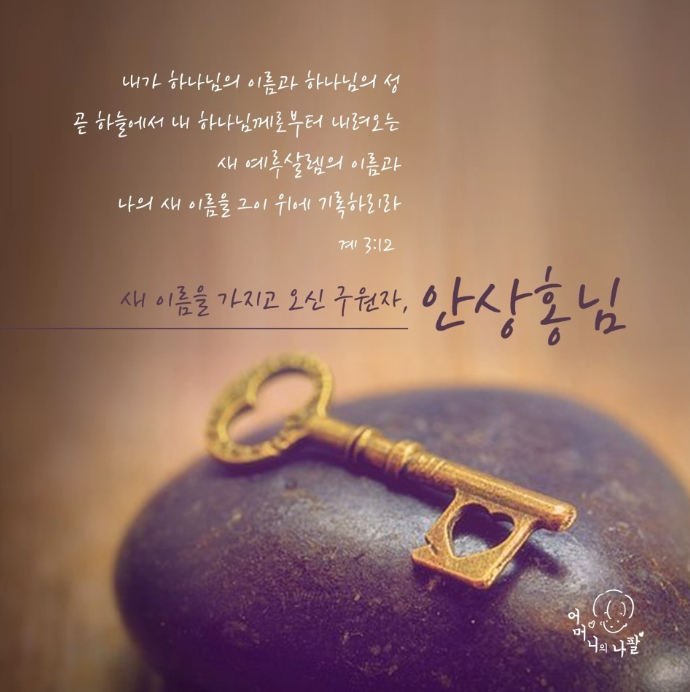 내가 하나님의 이름과 하나님의 성
곧 하늘에서 내 하나님께로부터 내려오는
새 예루살렘의 이름과
나의 새 이름을 그이 위에 기록하리라
계 3:12
새 이름을 가지고 오신 구원자, 안상홍님
어머니의 나팔